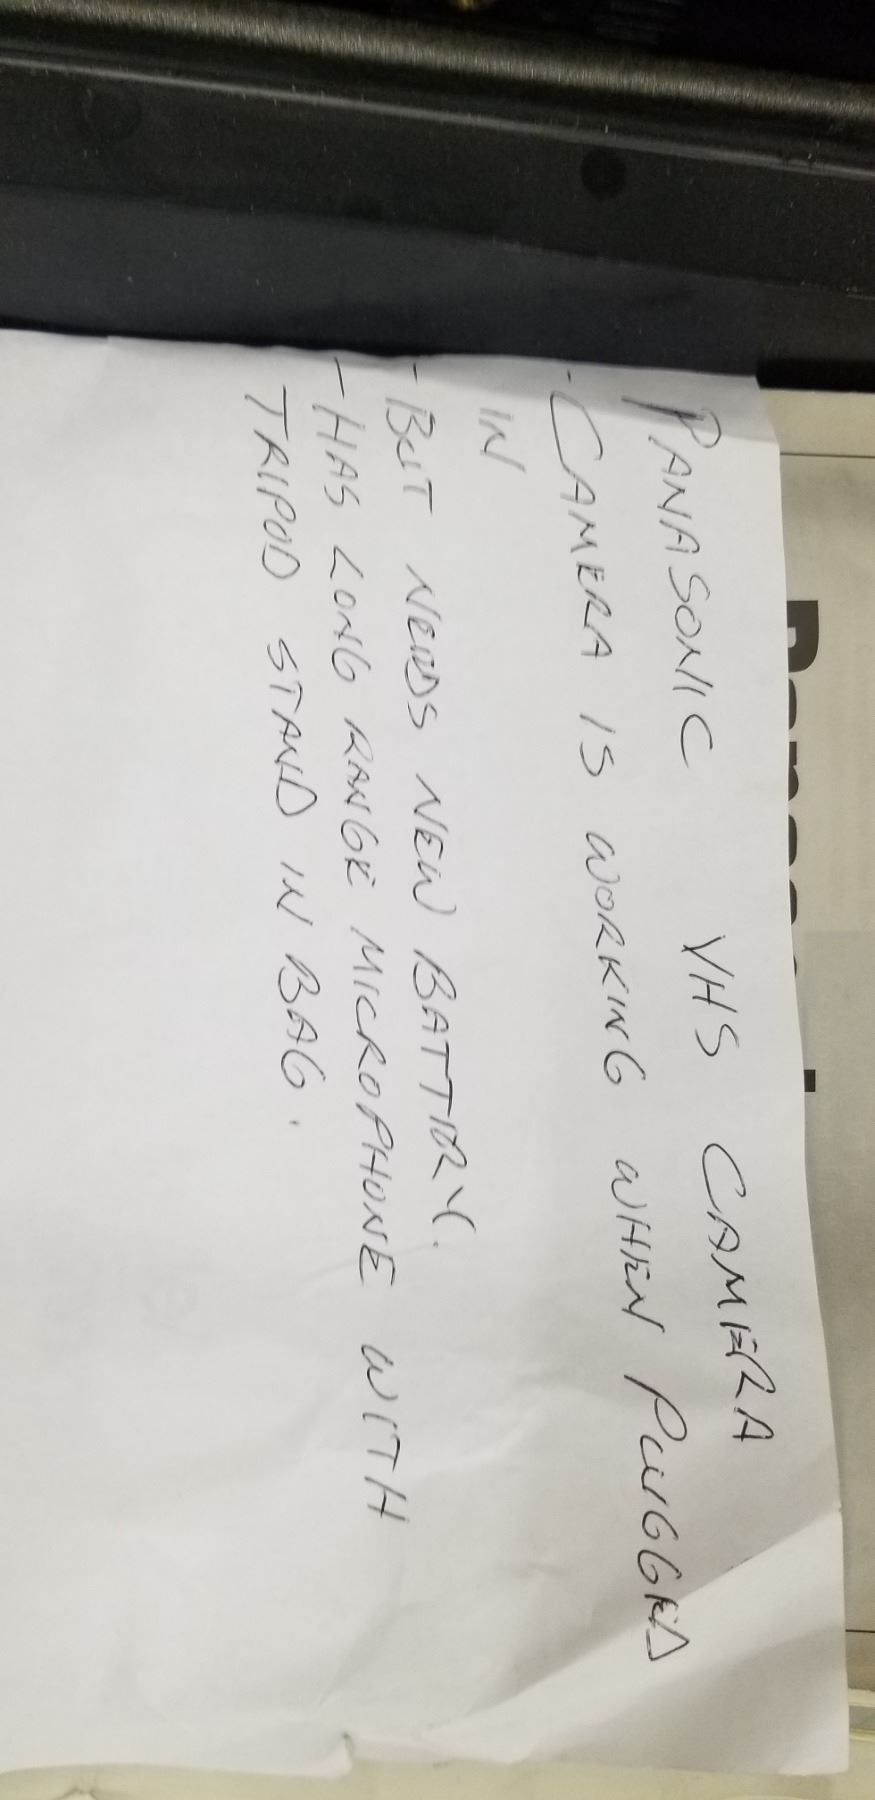 PANASONIC VHS CAMERA
- CAMERA IS WORKING WHEN PLUGGED
IN
- BUT NEEDS NEW BATTERY.
- HAS LONG RANGE MICROPHONE WITH
TRIPOD STAND IN BAG.